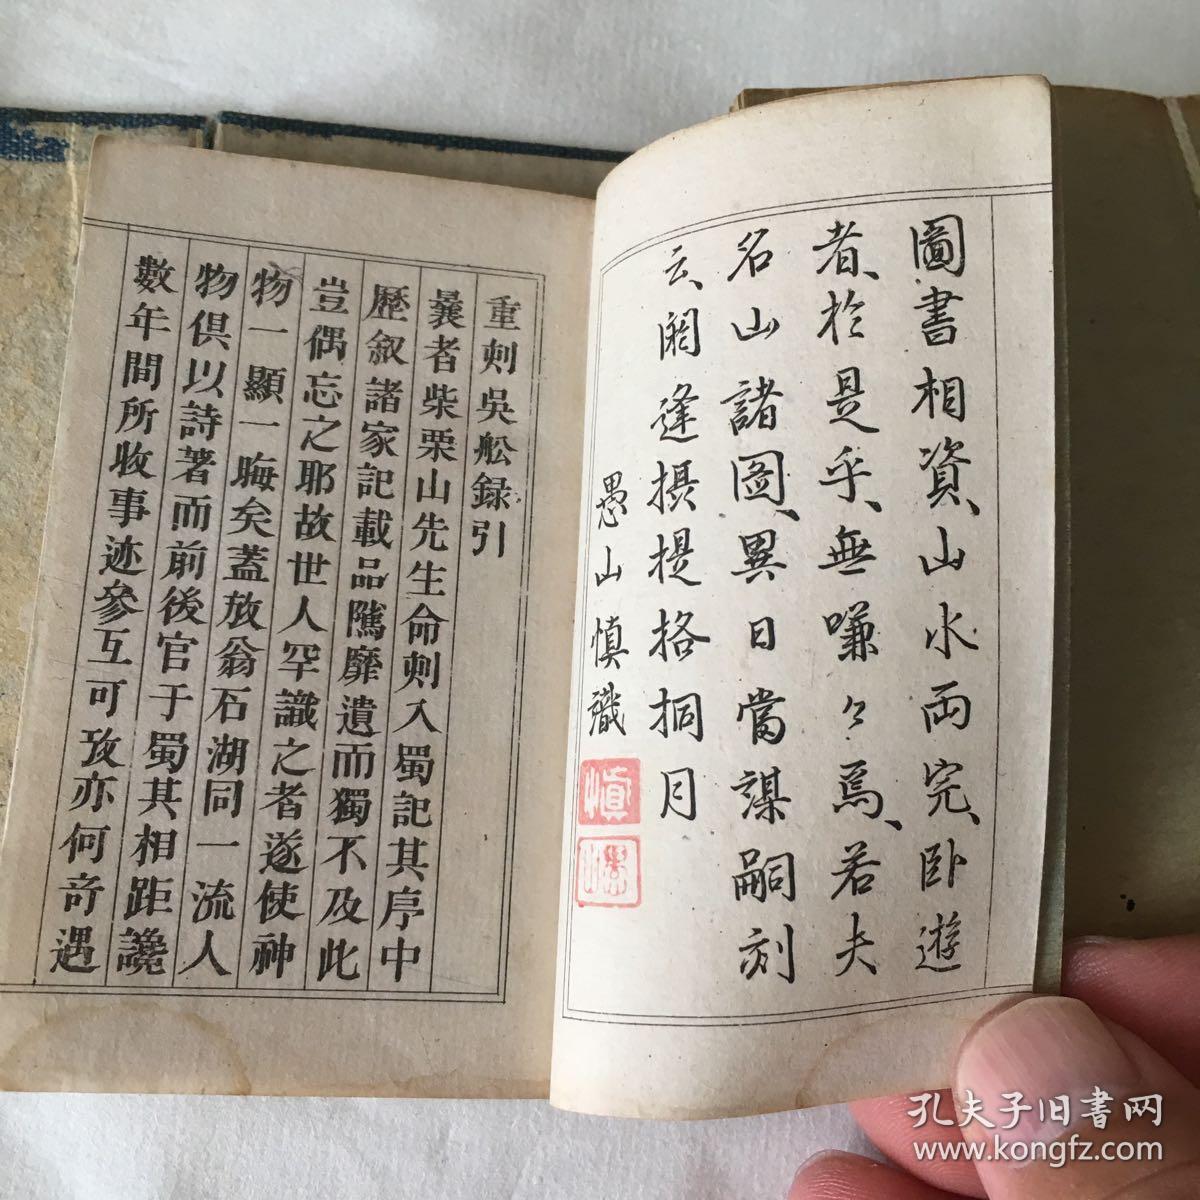 圖書相資、山水兩完、臥遊
者、於是乎、無嗛々焉、若夫
名山諸圖、異日當謀嗣刻
云、閼逢攝提格桐月
愚山慎識
重刺吳舩録引
曩者柴栗山先生命刺入蜀記其序中
歷叙諸家記載品隲靡遺而獨不及此
豈偶忘之耶故世人罕識之者遂使神
物一顯一晦矣蓋放翁石湖同一流人
物俱以詩著而前後官于蜀其相距讒
數年間所收事迹參互可攷亦何奇遇
孔夫子旧书网
www.kongfz.com